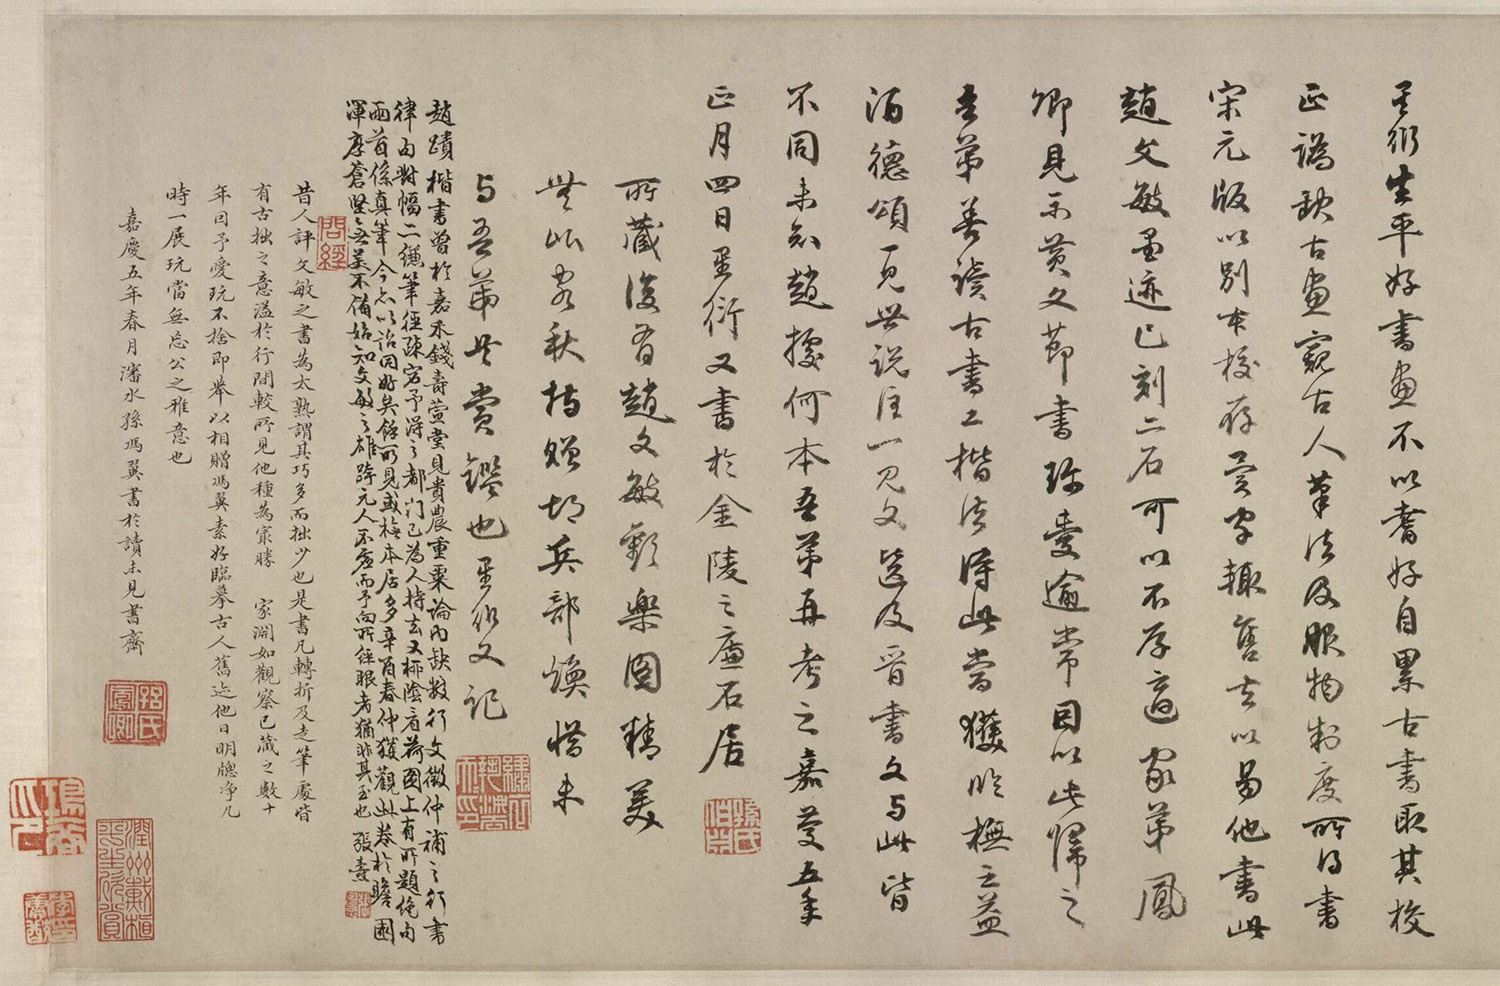 星衍生平好書畫不以耆好自累古書取其校
正譌缺古畫窺古人筆法及服物制度所得書
宋元版以別本校存異字輒售去以易他書此
趙文敏墨迹已刻二石可以不存適家弟鳳
卿見示黃文節書珍愛逾常因以此歸之
吾弟善讀古書工楷法得此當獲臨橅之益
酒德頌一見世說注一見文選及晉書文与此皆
不同未知趙據何本吾弟再考之嘉慶五年
正月四日星衍又書於金陵之廉石居
所藏後有趙文敏甕樂圖精美
無比客秋持贈胡兵部煥惜未
与吾弟共賞鑑也星衍又記
趙蹟楷書曾於嘉禾錢壽萱堂見貴農重粟論內缺数行文徵仲補之行書
律句對幅二穗筆徑疎宕予得之都门已為人持去又柳陰看荷圖上有所題絶句
兩首係真筆今忘以詒同好矣餘所見或橅本居多辛酉春仲獲觀此卷於瞻園
渾厚蒼堅無美不備始知文敏之雄跨元人不虛而予向所經眼者猶非其至也 張壽
問經
昔人評文敏之書為太熟謂其巧多而拙少也是書凡轉折及走筆處皆
有古拙之意溢於行間較所見他種為冣勝 家淵如觀察已藏之數十
年因予愛玩不捨即舉以相贈馮翼素好臨摹古人舊迹他日明牕净几
時一展玩當無忘公之雅意也
嘉慶五年春月瀋水孫馮翼書於讀未見書齋